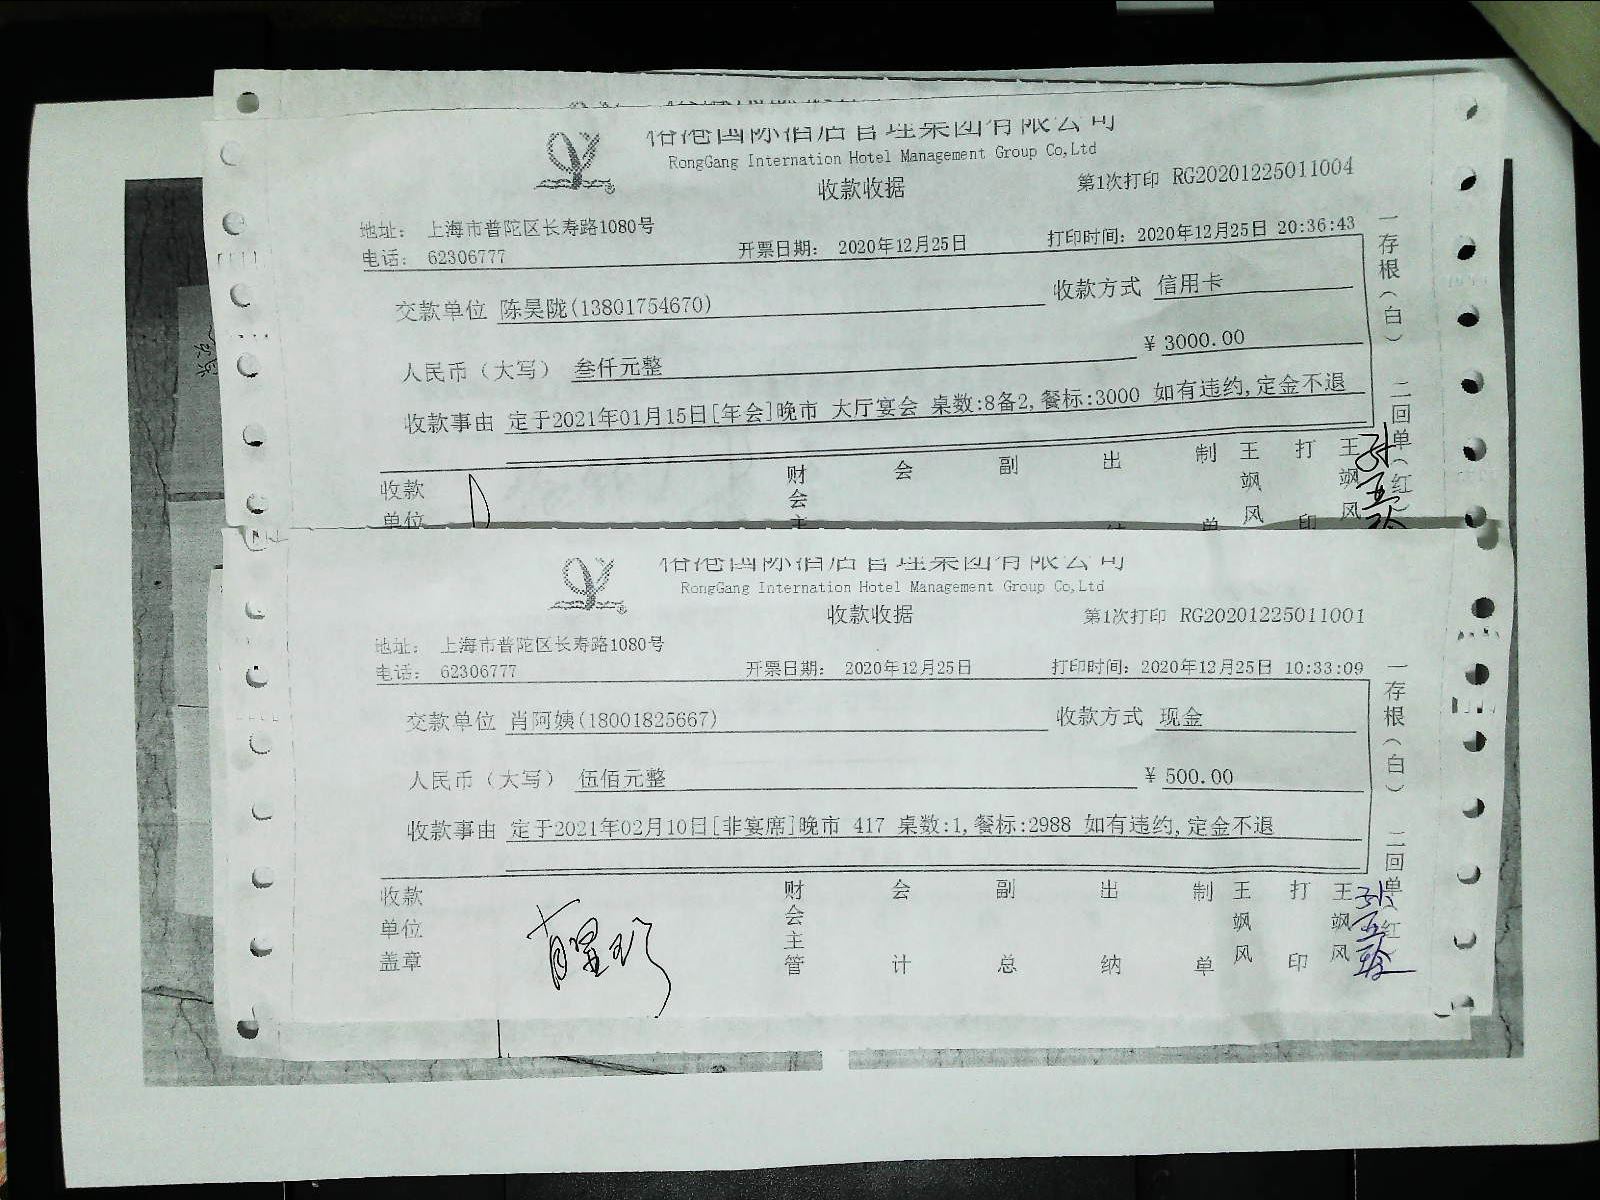 国际酒店管理集团有限公司
RongGang Internation Hotel Management Group Co,Ltd
收款收据
第1次打印 RG20201225011004
地址: 上海市普陀区长寿路1080号
电话: 62306777
开票日期: 2020年12月25日
打印时间: 2020年12月25日 20:36:43
交款单位 陈昊陇(13801754670)
收款方式 信用卡
人民币（大写） 叁仟元整
¥ 3000.00
收款事由 定于2021年01月15日[年会]晚市 大厅宴会 桌数:8备2,餐标:3000 如有违约,定金不退
一存根（白） 二回单（红）
收款单位
财会主
会
副
出纳
制单
王飒风
打印
王飒风
国际酒店管理集团有限公司
RongGang Internation Hotel Management Group Co,Ltd
收款收据
第1次打印 RG20201225011001
地址: 上海市普陀区长寿路1080号
电话: 62306777
开票日期: 2020年12月25日
打印时间: 2020年12月25日 10:33:09
交款单位 肖阿姨(18001825667)
收款方式 现金
人民币（大写） 伍佰元整
¥ 500.00
收款事由 定于2021年02月10日[非宴席]晚市 417 桌数:1,餐标:2988 如有违约,定金不退
一存根（白） 二回单（红）
收款单位盖章
财会主管
会计
副总
出纳
制单
王飒风
打印
王飒风